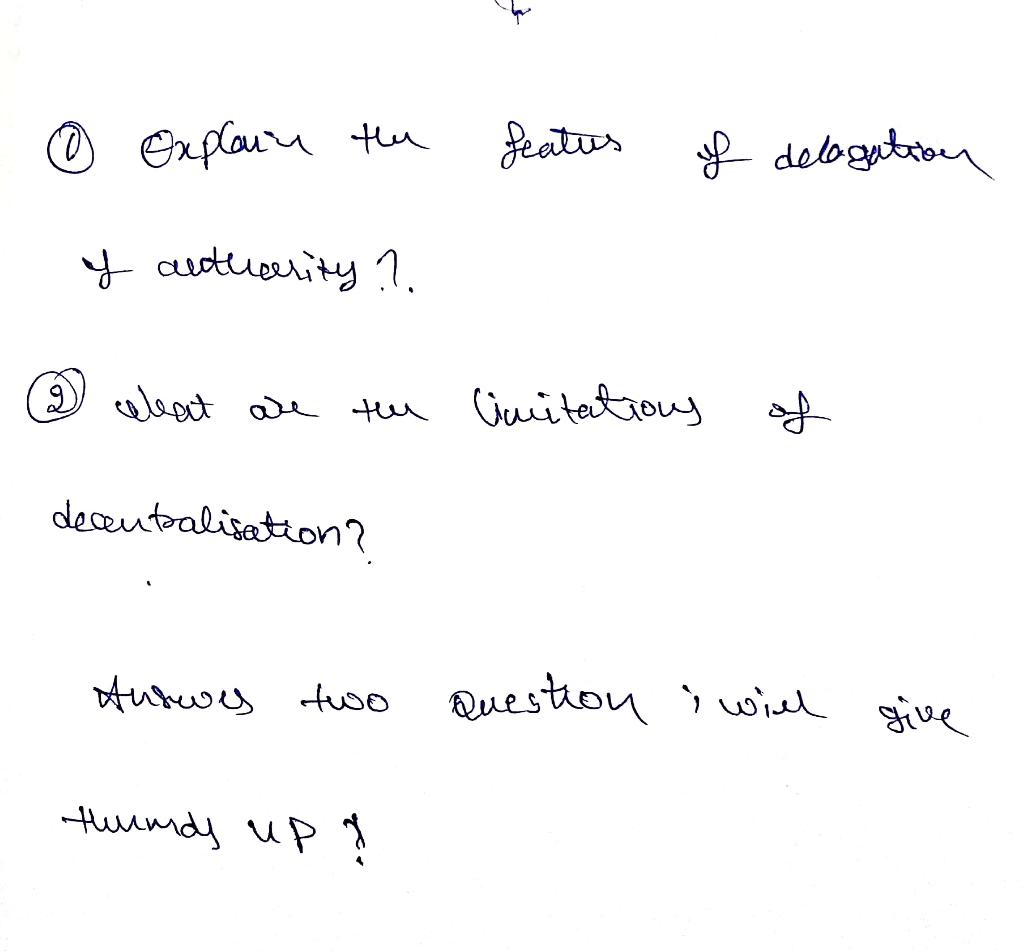 ① Explain the featus of delagation
of authority ?.
② What are the limitations of
decentralisation?
Answer two Question i will give
thumds up ?